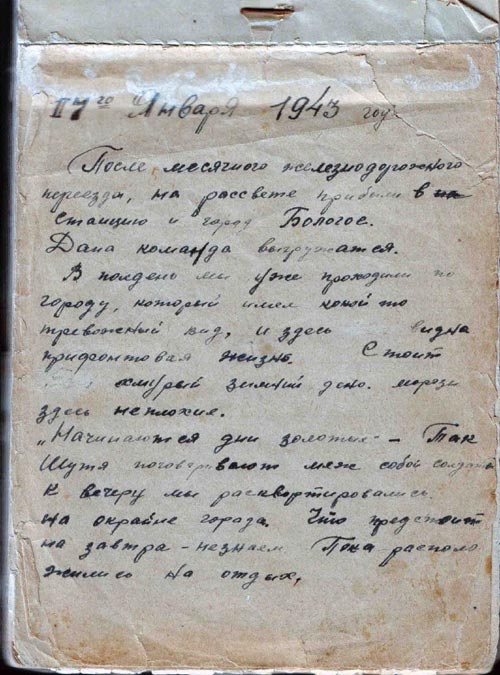 17го Января 1943 год
После месячного железнодорожного
переезда, на рассвете прибыли в на
Станцию и город Бологое.
Дана команда выгружатся.
В полдень мы уже проходили по
городу, который имел какой то
тревожный вид, и здесь видна
прифронтовая жизнь. Стоит
хмурый зимний день. морозы
здесь неплохие.
„Начинаются дни золотые - Так
Шутя поговаривают меж собой солдаты
К вечеру мы расквартировались
на окраине города. Что предстоит
на завтра - незнаем Пока располо
жились на отдых.